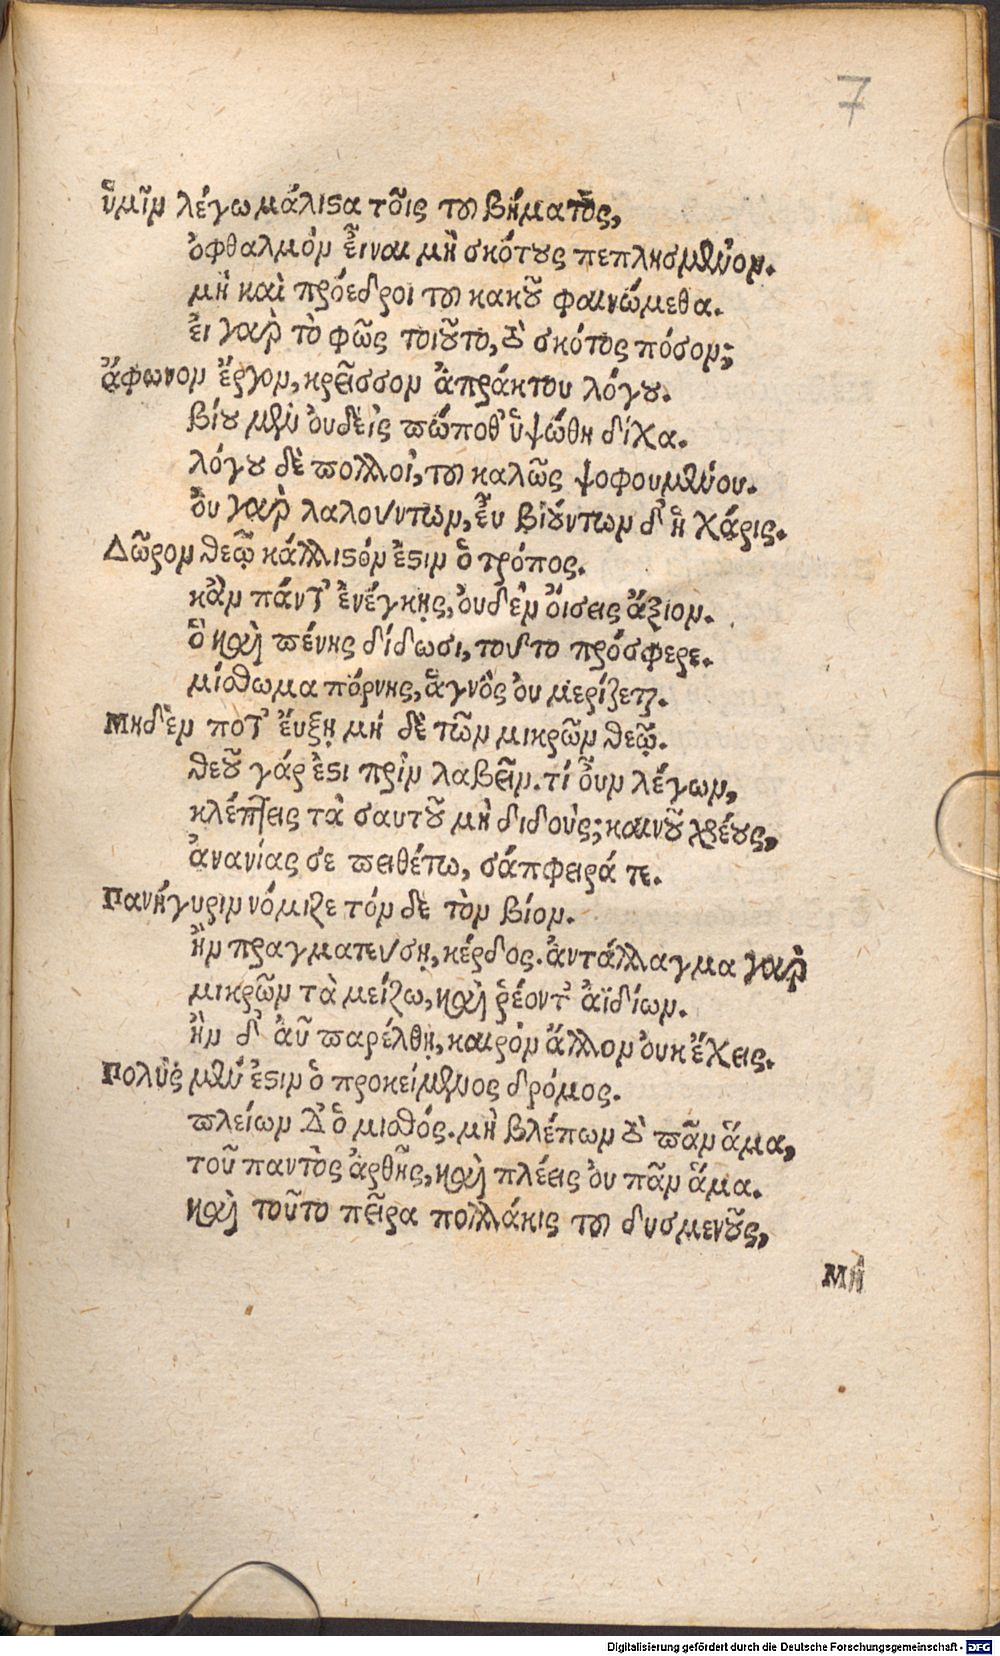 7
ὑμῖν λέγω μάλιστα τοῖς τοῦ βήματος,
ὀφθαλμὸν εἶναι μὴ σκότους πεπλησμένον.
μὴ καὶ πρόεδροι τοῦ κακοῦ φαινώμεθα.
εἰ γὰρ τὸ φῶς τοιοῦτο, ὁ σκότος πόσον;
ἄφωνον ἔργον, κρεῖσσον ἀπράκτου λόγου.
βίου μὲν οὐδεὶς πώποθ' ὑψώθη δίχα.
λόγου δὲ πολλοὶ, τοῦ καλῶς ψοφουμένου.
οὐ γὰρ λαλούντων, εὖ βιούντων δ' ἡ χάρις.
Δῶρον θεῷ κάλλιστόν ἐστιν ὁ τρόπος.
κἂν πάντ' ἐνέγκῃς, οὐδὲν οἴσεις ἄξιον.
ὃ καὶ πένης δίδωσι, τοῦτο πρόσφερε.
μίσθωμα πόρνης, ἁγνὸς οὐ μερίζεται.
Μηδὲν ποτ' εὔξῃ μή δὲ τῶν μικρῶν θεῷ.
θεοῦ γάρ ἐστι πρὶν λαβεῖν. τί οὖν λέγων,
κλέπτεις τὰ σαυτοῦ μὴ διδούς; καινοῦ χρέους,
ἀνανίας σε πειθέτω, σάπφειρά τε.
Πανήγυριν νόμιζε τόν δὲ τὸν βίον.
ἢν πραγματεύσῃ, κέρδος. ἀντάλλαγμα γὰρ
μικρῶν τὰ μείζω, καὶ ῥέοντ' ἀϊδίων.
ἢν δ' αὖ παρέλθῃ, καιρὸν ἄλλον οὐκ ἔχεις.
Πολὺς μέν ἐστιν ὁ προκείμενος δρόμος.
πλείων δ' ὁ μισθός. μὴ βλέπων ὁ πᾶν ἅμα,
τοῦ παντὸς ἀρθῇς, καὶ πλέεις οὐ πᾶν ἅμα.
καὶ τοῦτο πεῖρα πολλάκις τοῦ δυσμενοῦς,
Μή
Digitalisierung gefördert durch die Deutsche Forschungsgemeinschaft - DFG